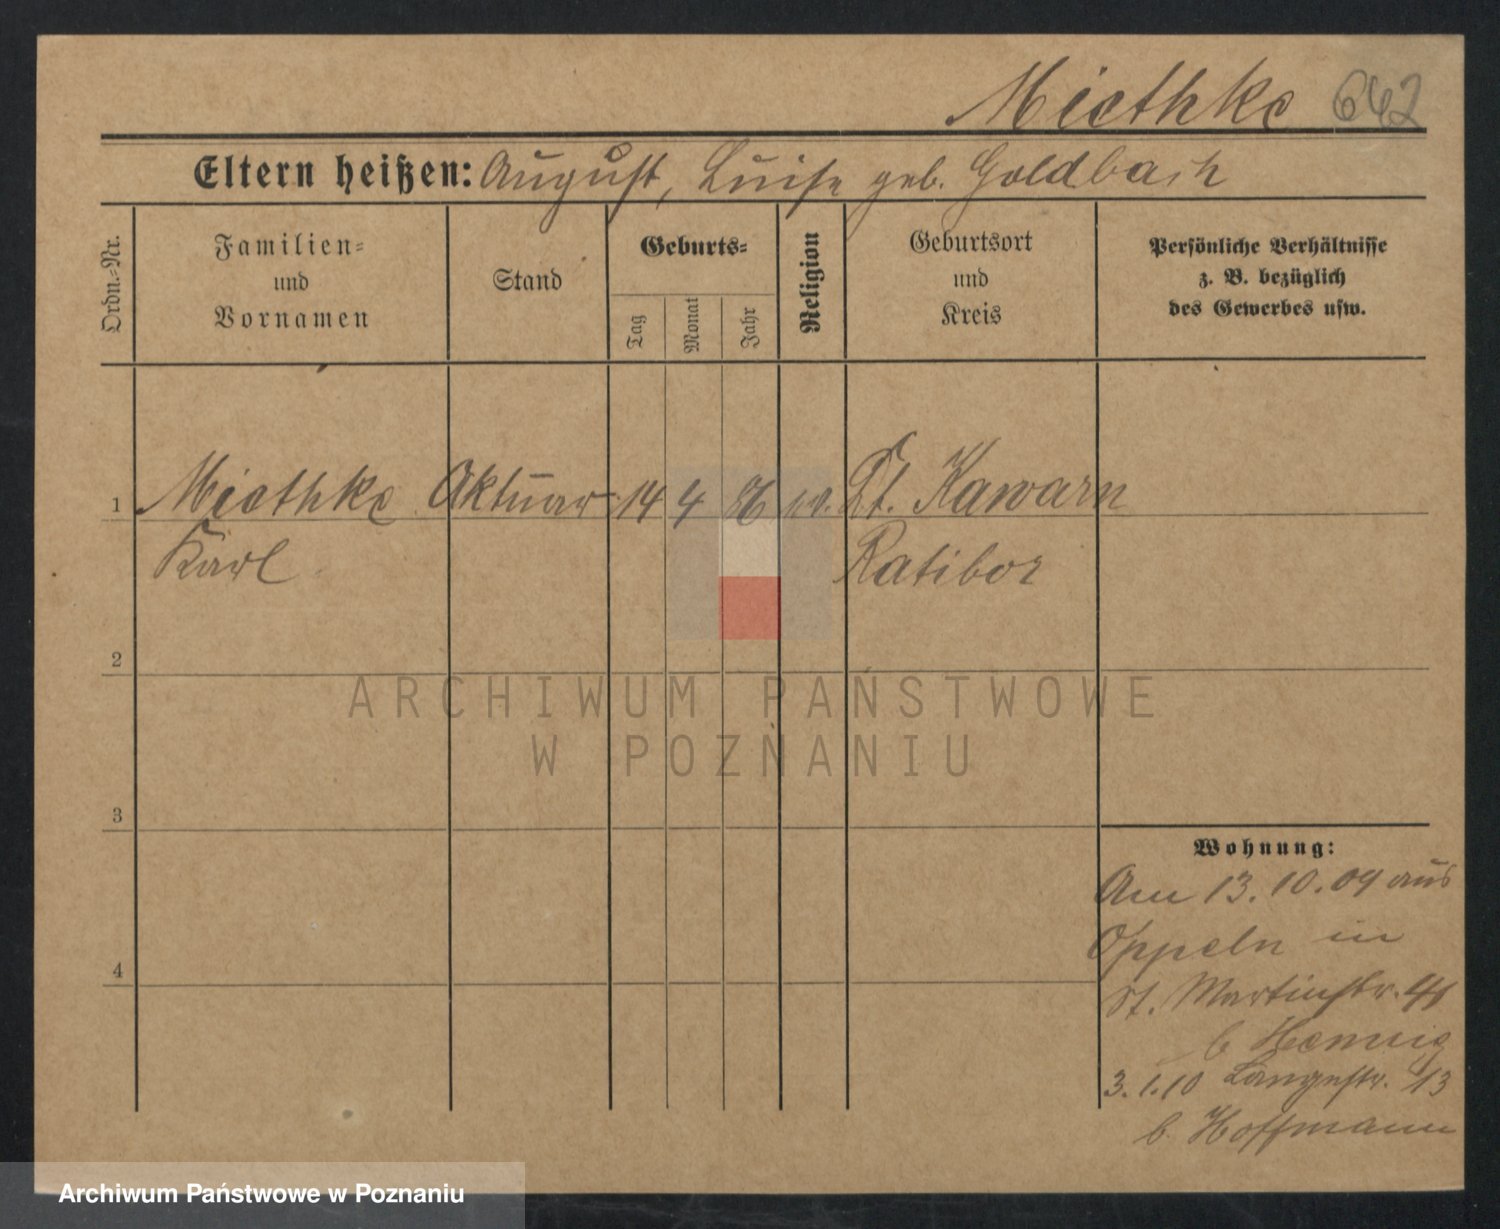 Miethke 642
Eltern heißen: August, Luise geb. Goldbach
Ordn.-Nr.
Familien-
und
Vornamen
Stand
Geburts-
Tag
Monat
Jahr
Religion
Geburtsort
und
Kreis
Persönliche Verhältnisse
z. B. bezüglich
des Gewerbes usw.
1 Miethke Aktuar 14 4 86 ev. Dt. Kawarn
Karl Ratibor
2
3
4
Wohnung:
Am 13.10.09 aus
Oppeln in
St. Martinstr. 41
b Hennig
3.1.10 Langestr. 13
b. Hoffmann
ARCHIWUM PAŃSTWOWE
W POZNANIU
Archiwum Państwowe w Poznaniu